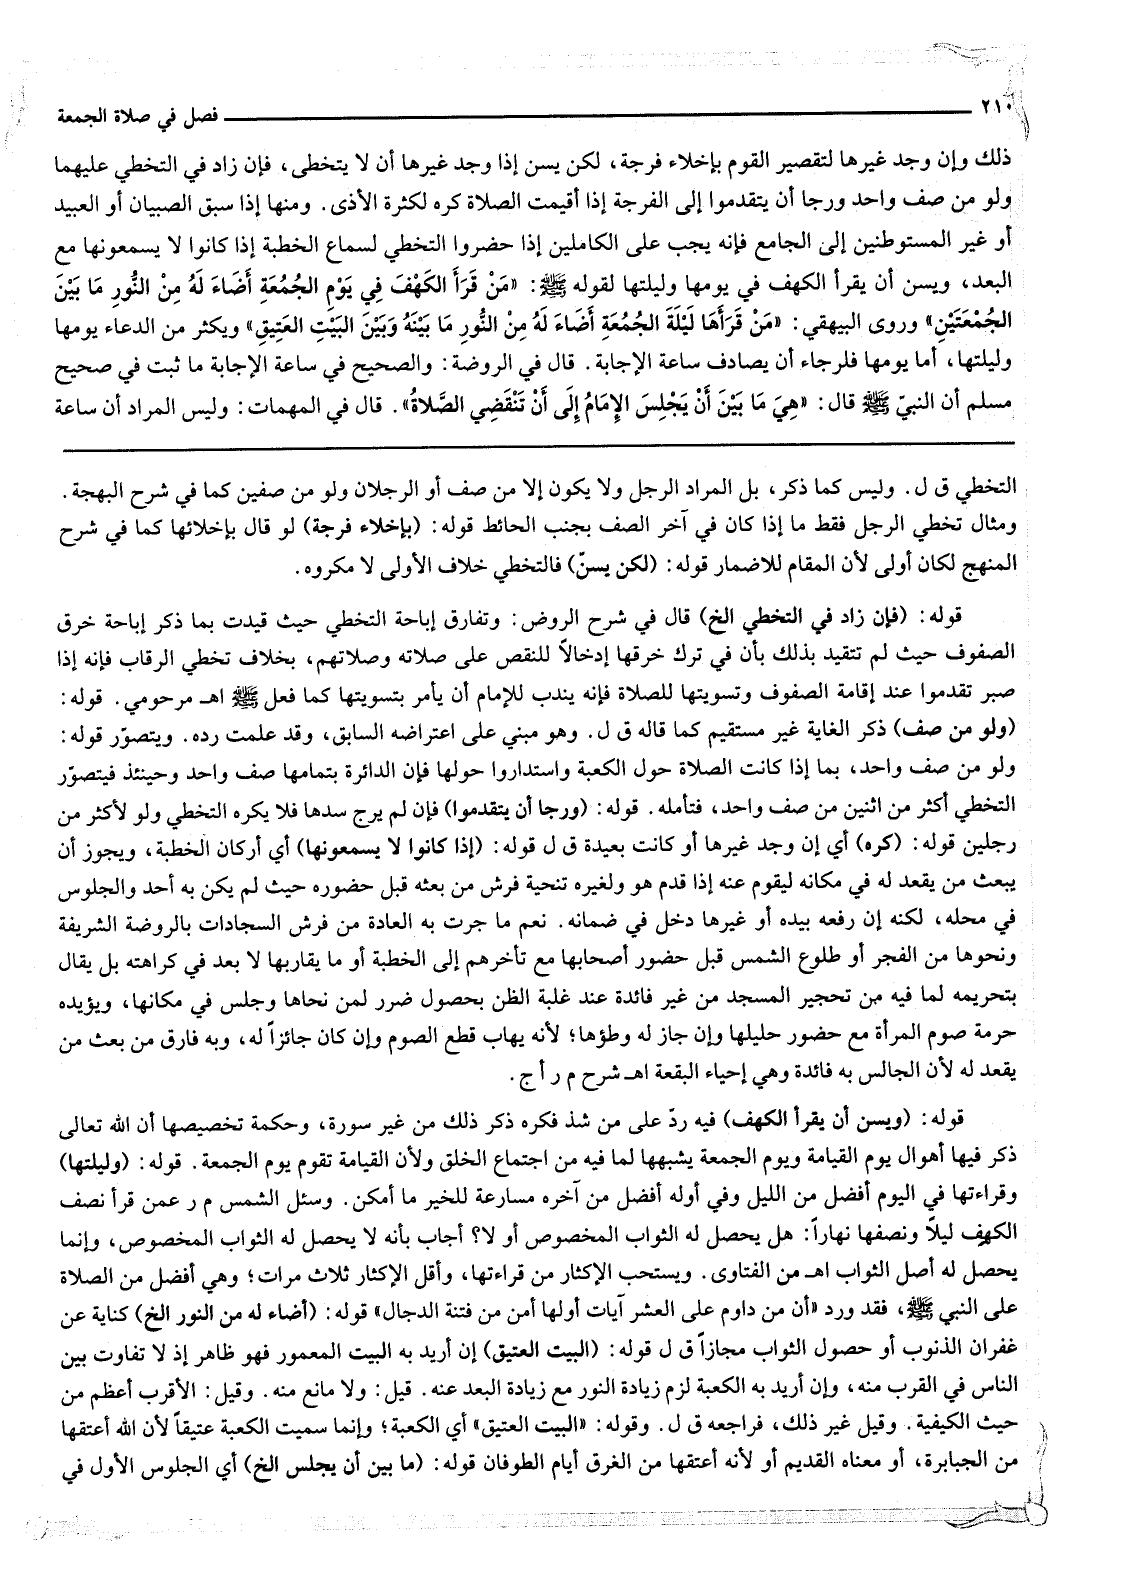 ٢١٠ فصل في صلاة الجمعة
ذلك وإن وجد غيرها لتقصير القوم بإخلاء فرجة، لكن يسن إذا وجد غيرها أن لا يتخطى، فإن زاد في التخطي عليهما
ولو من صف واحد ورجا أن يتقدموا إلى الفرجة إذا أقيمت الصلاة كره لكثرة الأذى. ومنها إذا سبق الصبيان أو العبيد
أو غير المستوطنين إلى الجامع فإنه يجب على الكاملين إذا حضروا التخطي لسماع الخطبة إذا كانوا لا يسمعونها مع
البعد، ويسن أن يقرأ الكهف في يومها وليلتها لقوله ﷺ: «مَنْ قَرَأَ الكَهْفَ فِي يَوْمِ الجُمُعَةِ أَضَاءَ لَهُ مِنْ النُّورِ مَا بَيْنَ
الجُمْعَتَيْنِ» وروى البيهقي: «مَنْ قَرَأَهَا لَيْلَةَ الجُمُعَةِ أَضَاءَ لَهُ مِنْ النُّورِ مَا بَيْنَهُ وَبَيْنَ البَيْتِ العَتِيقِ» ويكثر من الدعاء يومها
وليلتها، أما يومها فلرجاء أن يصادف ساعة الإجابة. قال في الروضة: والصحيح في ساعة الإجابة ما ثبت في صحيح
مسلم أن النبيّ ﷺ قال: «هِيَ مَا بَيْنَ أَنْ يَجْلِسَ الإِمَامُ إِلَى أَنْ تَنْقَضِي الصَّلاةُ». قال في المهمات: وليس المراد أن ساعة
التخطي ق ل. وليس كما ذكر، بل المراد الرجل ولا يكون إلا من صف أو الرجلان ولو من صفين كما في شرح البهجة.
ومثال تخطي الرجل فقط ما إذا كان في آخر الصف بجنب الحائط قوله: (بإخلاء فرجة) لو قال بإخلائها كما في شرح
المنهج لكان أولى لأن المقام للاضمار قوله: (لكن يسنّ) فالتخطي خلاف الأولى لا مكروه.
قوله: (فإن زاد في التخطي الخ) قال في شرح الروض: وتفارق إباحة التخطي حيث قيدت بما ذكر إباحة خرق
الصفوف حيث لم تتقيد بذلك بأن في ترك خرقها إدخالاً للنقص على صلاته وصلاتهم، بخلاف تخطي الرقاب فإنه إذا
صبر تقدموا عند إقامة الصفوف وتسويتها للصلاة فإنه يندب للإمام أن يأمر بتسويتها كما فعل ﷺ اهـ مرحومي. قوله:
(ولو من صف) ذكر الغاية غير مستقيم كما قاله ق ل. وهو مبني على اعتراضه السابق، وقد علمت رده. ويتصوّر قوله:
ولو من صف واحد، بما إذا كانت الصلاة حول الكعبة واستداروا حولها فإن الدائرة بتمامها صف واحد وحينئذ فيتصوّر
التخطي أكثر من اثنين من صف واحد، فتأمله. قوله: (ورجا أن يتقدموا) فإن لم يرج سدها فلا يكره التخطي ولو لأكثر من
رجلين قوله: (كره) أي إن وجد غيرها أو كانت بعيدة ق ل قوله: (إذا كانوا لا يسمعونها) أي أركان الخطبة، ويجوز أن
يبعث من يقعد له في مكانه ليقوم عنه إذا قدم هو ولغيره تنحية فرش من بعثه قبل حضوره حيث لم يكن به أحد والجلوس
في محله، لكنه إن رفعه بيده أو غيرها دخل في ضمانه. نعم ما جرت به العادة من فرش السجادات بالروضة الشريفة
ونحوها من الفجر أو طلوع الشمس قبل حضور أصحابها مع تأخرهم إلى الخطبة أو ما يقاربها لا بعد في كراهته بل يقال
بتحريمه لما فيه من تحجير المسجد من غير فائدة عند غلبة الظن بحصول ضرر لمن نحاها وجلس في مكانها، ويؤيده
حرمة صوم المرأة مع حضور حليلها وإن جاز له وطؤها؛ لأنه يهاب قطع الصوم وإن كان جائزاً له، وبه فارق من بعث من
يقعد له لأن الجالس به فائدة وهي إحياء البقعة اهـ شرح م ر أ ج.
قوله: (ويسن أن يقرأ الكهف) فيه ردّ على من شذ فكره ذكر ذلك من غير سورة، وحكمة تخصيصها أن الله تعالى
ذكر فيها أهوال يوم القيامة ويوم الجمعة يشبهها لما فيه من اجتماع الخلق ولأن القيامة تقوم يوم الجمعة. قوله: (وليلتها)
وقراءتها في اليوم أفضل من الليل وفي أوله أفضل من آخره مسارعة للخير ما أمكن. وسئل الشمس م ر عمن قرأ نصف
الكهف ليلاً ونصفها نهاراً: هل يحصل له الثواب المخصوص أو لا؟ أجاب بأنه لا يحصل له الثواب المخصوص، وإنما
يحصل له أصل الثواب اهـ من الفتاوى. ويستحب الإكثار من قراءتها، وأقل الإكثار ثلاث مرات؛ وهي أفضل من الصلاة
على النبي ﷺ، فقد ورد «أن من داوم على العشر آيات أولها أمن من فتنة الدجال» قوله: (أضاء له من النور الخ) كناية عن
غفران الذنوب أو حصول الثواب مجازاً ق ل قوله: (البيت العتيق) إن أريد به البيت المعمور فهو ظاهر إذ لا تفاوت بين
الناس في القرب منه، وإن أريد به الكعبة لزم زيادة النور مع زيادة البعد عنه. قيل: ولا مانع منه. وقيل: الأقرب أعظم من
حيث الكيفية. وقيل غير ذلك، فراجعه ق ل. وقوله: «البيت العتيق» أي الكعبة؛ وإنما سميت الكعبة عتيقاً لأن الله أعتقها
من الجبابرة، أو معناه القديم أو لأنه أعتقها من الغرق أيام الطوفان قوله: (ما بين أن يجلس الخ) أي الجلوس الأول في